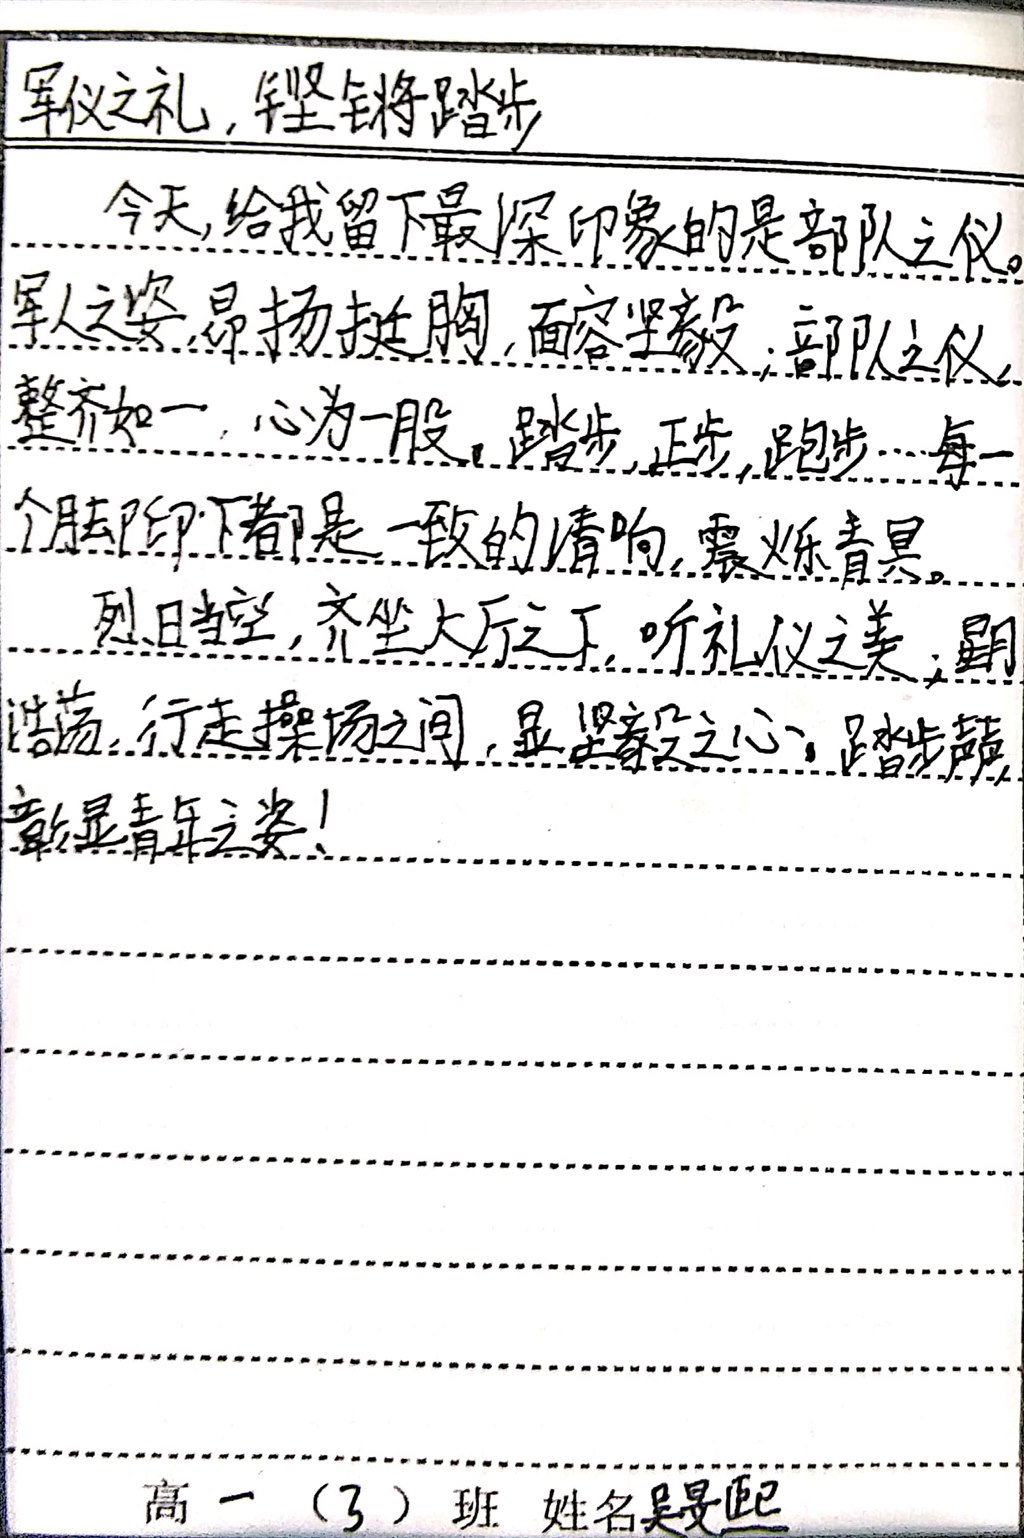 军仪之礼，铿锵踏步
今天，给我留下最深印象的是部队之仪。
军人之姿，昂扬挺胸，面容坚毅；部队之仪，
整齐如一，心为一股。踏步，正步，跑步……每一
个脚印下都是一致的清响，震烁青昊。
烈日当空，齐坐大厅之下，听礼仪之美；
浩荡，行走操场之间，显坚毅之心。踏步声声，
彰显青年之姿！
高一（3）班 姓名吴旻熙